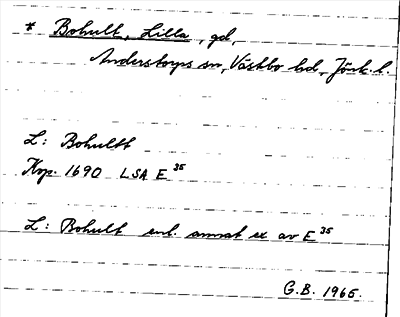 * Bohult, Lilla, gd,
Anderstorps sn, Västbo hd, Jönk. l.
L: Bohultt
Kop. 1690 LSA E 35
L: Bohult enl. annat ex av E 35
G.B. 1965.